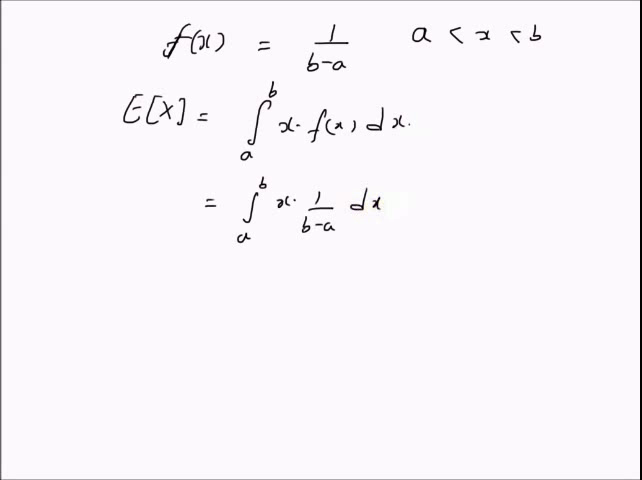 f(x) = 1/(b-a) a < x < b
E[X] = ∫_a^b x. f(x) dx.
= ∫_a^b x. 1/(b-a) dx